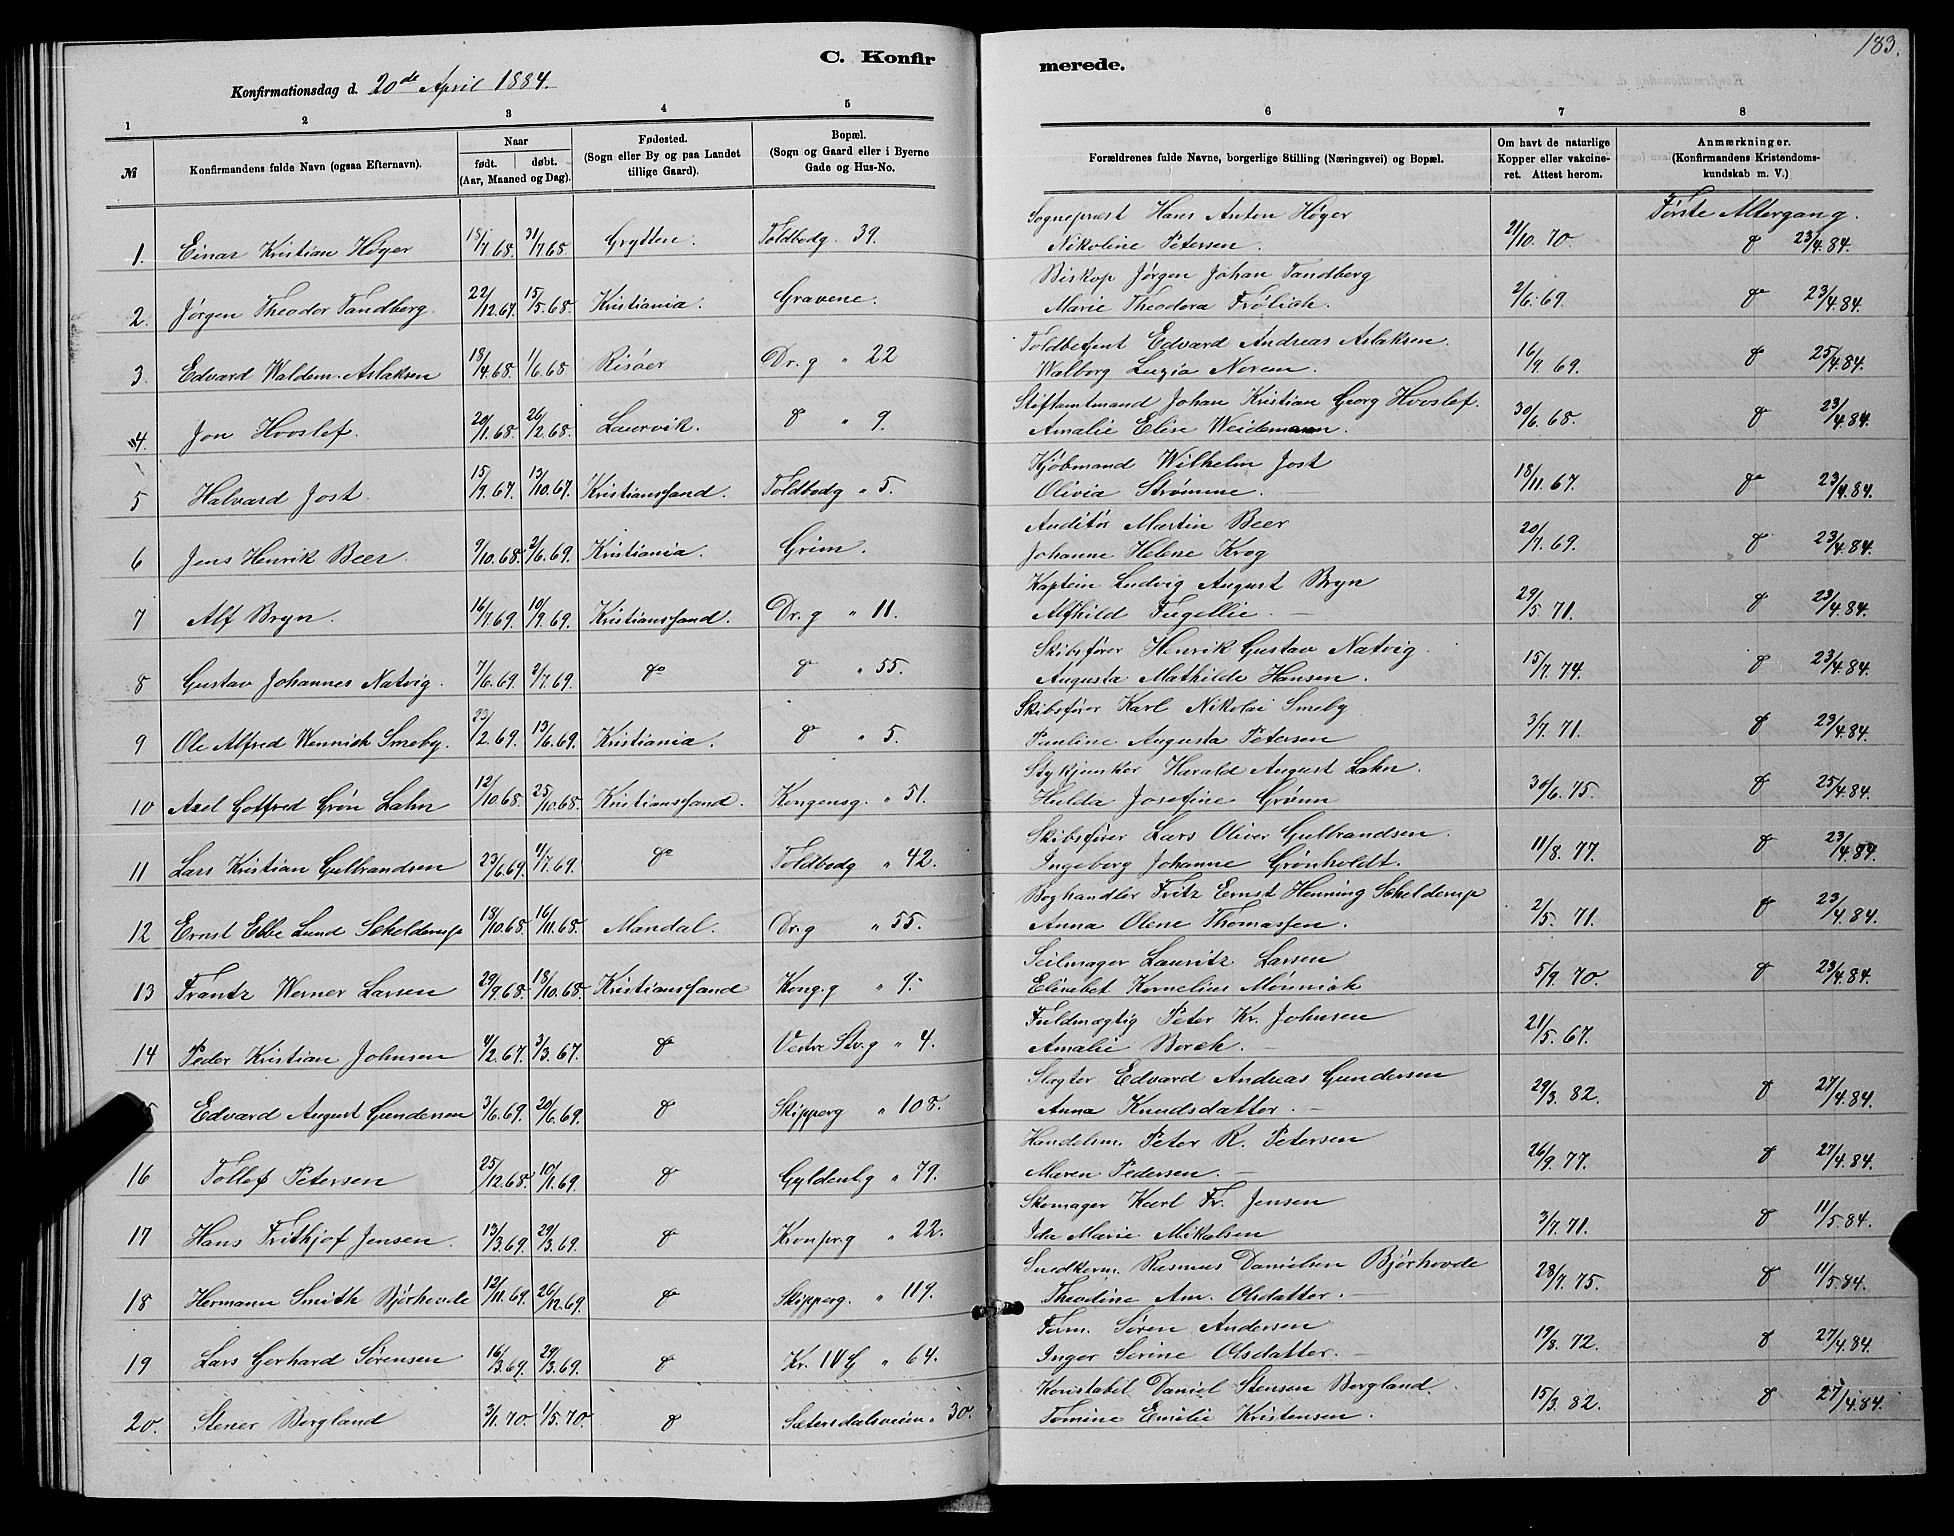 C. Konfir
merede.
183.
Konfirmationsdag d. 20de April 1884.
1 2 3 4 5 6 7 8
№
Konfirmandens fulde Navn (ogsaa Efternavn).
Naar
født. døbt.
(Aar, Maaned og Dag).
Fødested.
(Sogn eller By og paa Landet
tillige Gaard).
Bopæl.
(Sogn og Gaard eller i Byerne
Gade og Hus-No.
Forældrenes fulde Navne, borgerlige Stilling (Næringsvei) og Bopæl.
Om havt de naturlige
Kopper eller vakcine-
ret. Attest herom.
Anmærkninger.
(Konfirmandens Kristendoms-
kundskab m. V.)
Første Altergang.
Sogneprest Hans Anton Høyer
1. Einar Kristian Høyer 18/7.68. 31/7.68 Grytten. Toldbodg. 39. Nikoline Petersen. 21/10.70. do 23/4.84.
Biskop Jørgen Johan Tandberg
2. Jørgen Theodor Tandberg. 22/12.67. 15/5.68. Kristiania. Gravene. Marie Theodora Frølich. 2/6.69. do 23/4.84.
Toldbetjent Edvard Andreas Aslaksen.
3. Edvard Waldem. Aslaksen 18/4.68. 1/6.68 Risøer Dr.g " 22 Walborg Luzia Norem. 16/9.69. do 25/4.84.
Stiftamtmand Johan Kristian Georg Hvoslef.
"4. Jon Hvoslef. 20/1.68. 26/2.68. Laurvik. do " 9. Amalie Elise Weidemann. 30/6.68. do 23/4.84.
Kjøbmand Wilhelm Jost
5 Halvard Jost. 15/9.67. 13/10.67. Kristianssand. Toldbodg " 5. Olivia Strømme. 18/11.67. do 23/4.84.
Auditør Martin Beer
6 Jens Henrik Beer. 9/10.68. 2/6.69. Kristiania. Grim. Johanne Helene Krog 20/7.69. do 23/4.84.
Kaptein Ludvig August Bryn
7 Alf Bryn. 16/7.69. 10/9.69. Kristianssand. Dr.g " 11. Alfhild Fugellie. 29/5.71. do 23/4.84.
Skibsfører Henrik Gustav Natvig.
8 Gustav Johannes Natvig. 7/6.69. 2/7.69. do do " 55. Augusta Mathilde Hansen. 15/7.74. do 23/4.84.
Skibsfører Karl Nikolai Smeby
9 Ole Alfred Wennich Smeby. 23/2.69. 13/6.69. Kristiania. do " 5. Pauline Augusta Petersen 3/7.71. do 23/4.84.
Stykjunker Harald August Lahn.
10 Axel Gotfred Grøn Lahn 12/10.68. 25/10.68. Kristianssand. Kongensg. " 51. Hulda Josefine Grønn 30/6.75. do 25/4.84.
Skibsfører Lars Oliver Gulbrandsen.
11 Lars Kristian Gulbrandsen 23/6.69. 4/7.69. do Toldbodg " 42. Ingeborg Johanne Grønholdt. 11/8.77. do 23/4.84.
Boghandler Fritz Ernst Henning Schelderup
12 Ernst Ebbe Lund Schelderup 18/10.68. 16/11.68. Mandal. Dr.g " 55. Anna Olene Thomassen. 2/5.71. do 23/4.84.
Seilmager Lauritz Larsen
13 Frantz Werner Larsen 29/9.68. 18/10.68. Kristianssand Kong.g " 9. Elisabet Kornelius Mønnich 5/9.70. do 23/4.84.
Fuldmægtig Peter Kr. Johnsen
14 Peder Kristian Johnsen 4/2.67. 3/3.67. do Vestre Stv.g " 4. Amalie Borch. 21/5.67.
Slagter Edvard Andreas Gundersen
5 Edvard August Gundersen 3/6.69. 20/6.69. do Skipperg " 108. Anna Knudsdatter. 29/3.82. do 27/4.84.
Handelsm. Peter R. Petersen
16 Tollef Petersen 25/12.68. 10/1.69. do Gyldenl.g " 79. Maren Pedersen. 26/9.77. do 27/4.84.
Skomager Karl Fr. Jensen
17 Hans Frithjof Jensen. 13/3.69. 29/3.69. do Kronpr.g " 22. Ida Marie Mikalsen 3/7.71. do 11/5.84.
Snedkerm. Rasmus Danielsen Bjørhovde
18 Hermann Smith Bjørhovde 12/11.69. 26/12.69. do Skipperg. " 119. Theodine Am. Olsdatter. 28/7.75. do 11/5.84.
Tørm. Søren Andersen
19 Lars Gerhard Sørensen 16/3.69. 29/3.69. do Kr. IV G " 64. Inger Serine Olsdatter. 19/8.72. do 27/4.84.
Konstabel Daniel Stensen Bergland.
20. Stener Bergland 3/1.70. 1/5.70. do Sætersdalsveien " 30. Tomine Emilie Kristensen. 15/3.82. do 27/4.84.